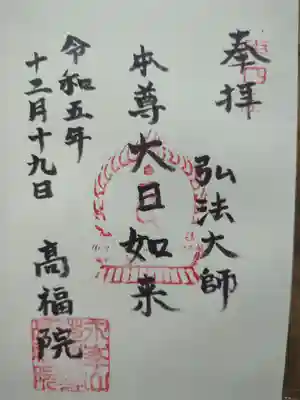 奉拝
弘法大師
本尊大日如来
高福院
令和五年
十二月十九日